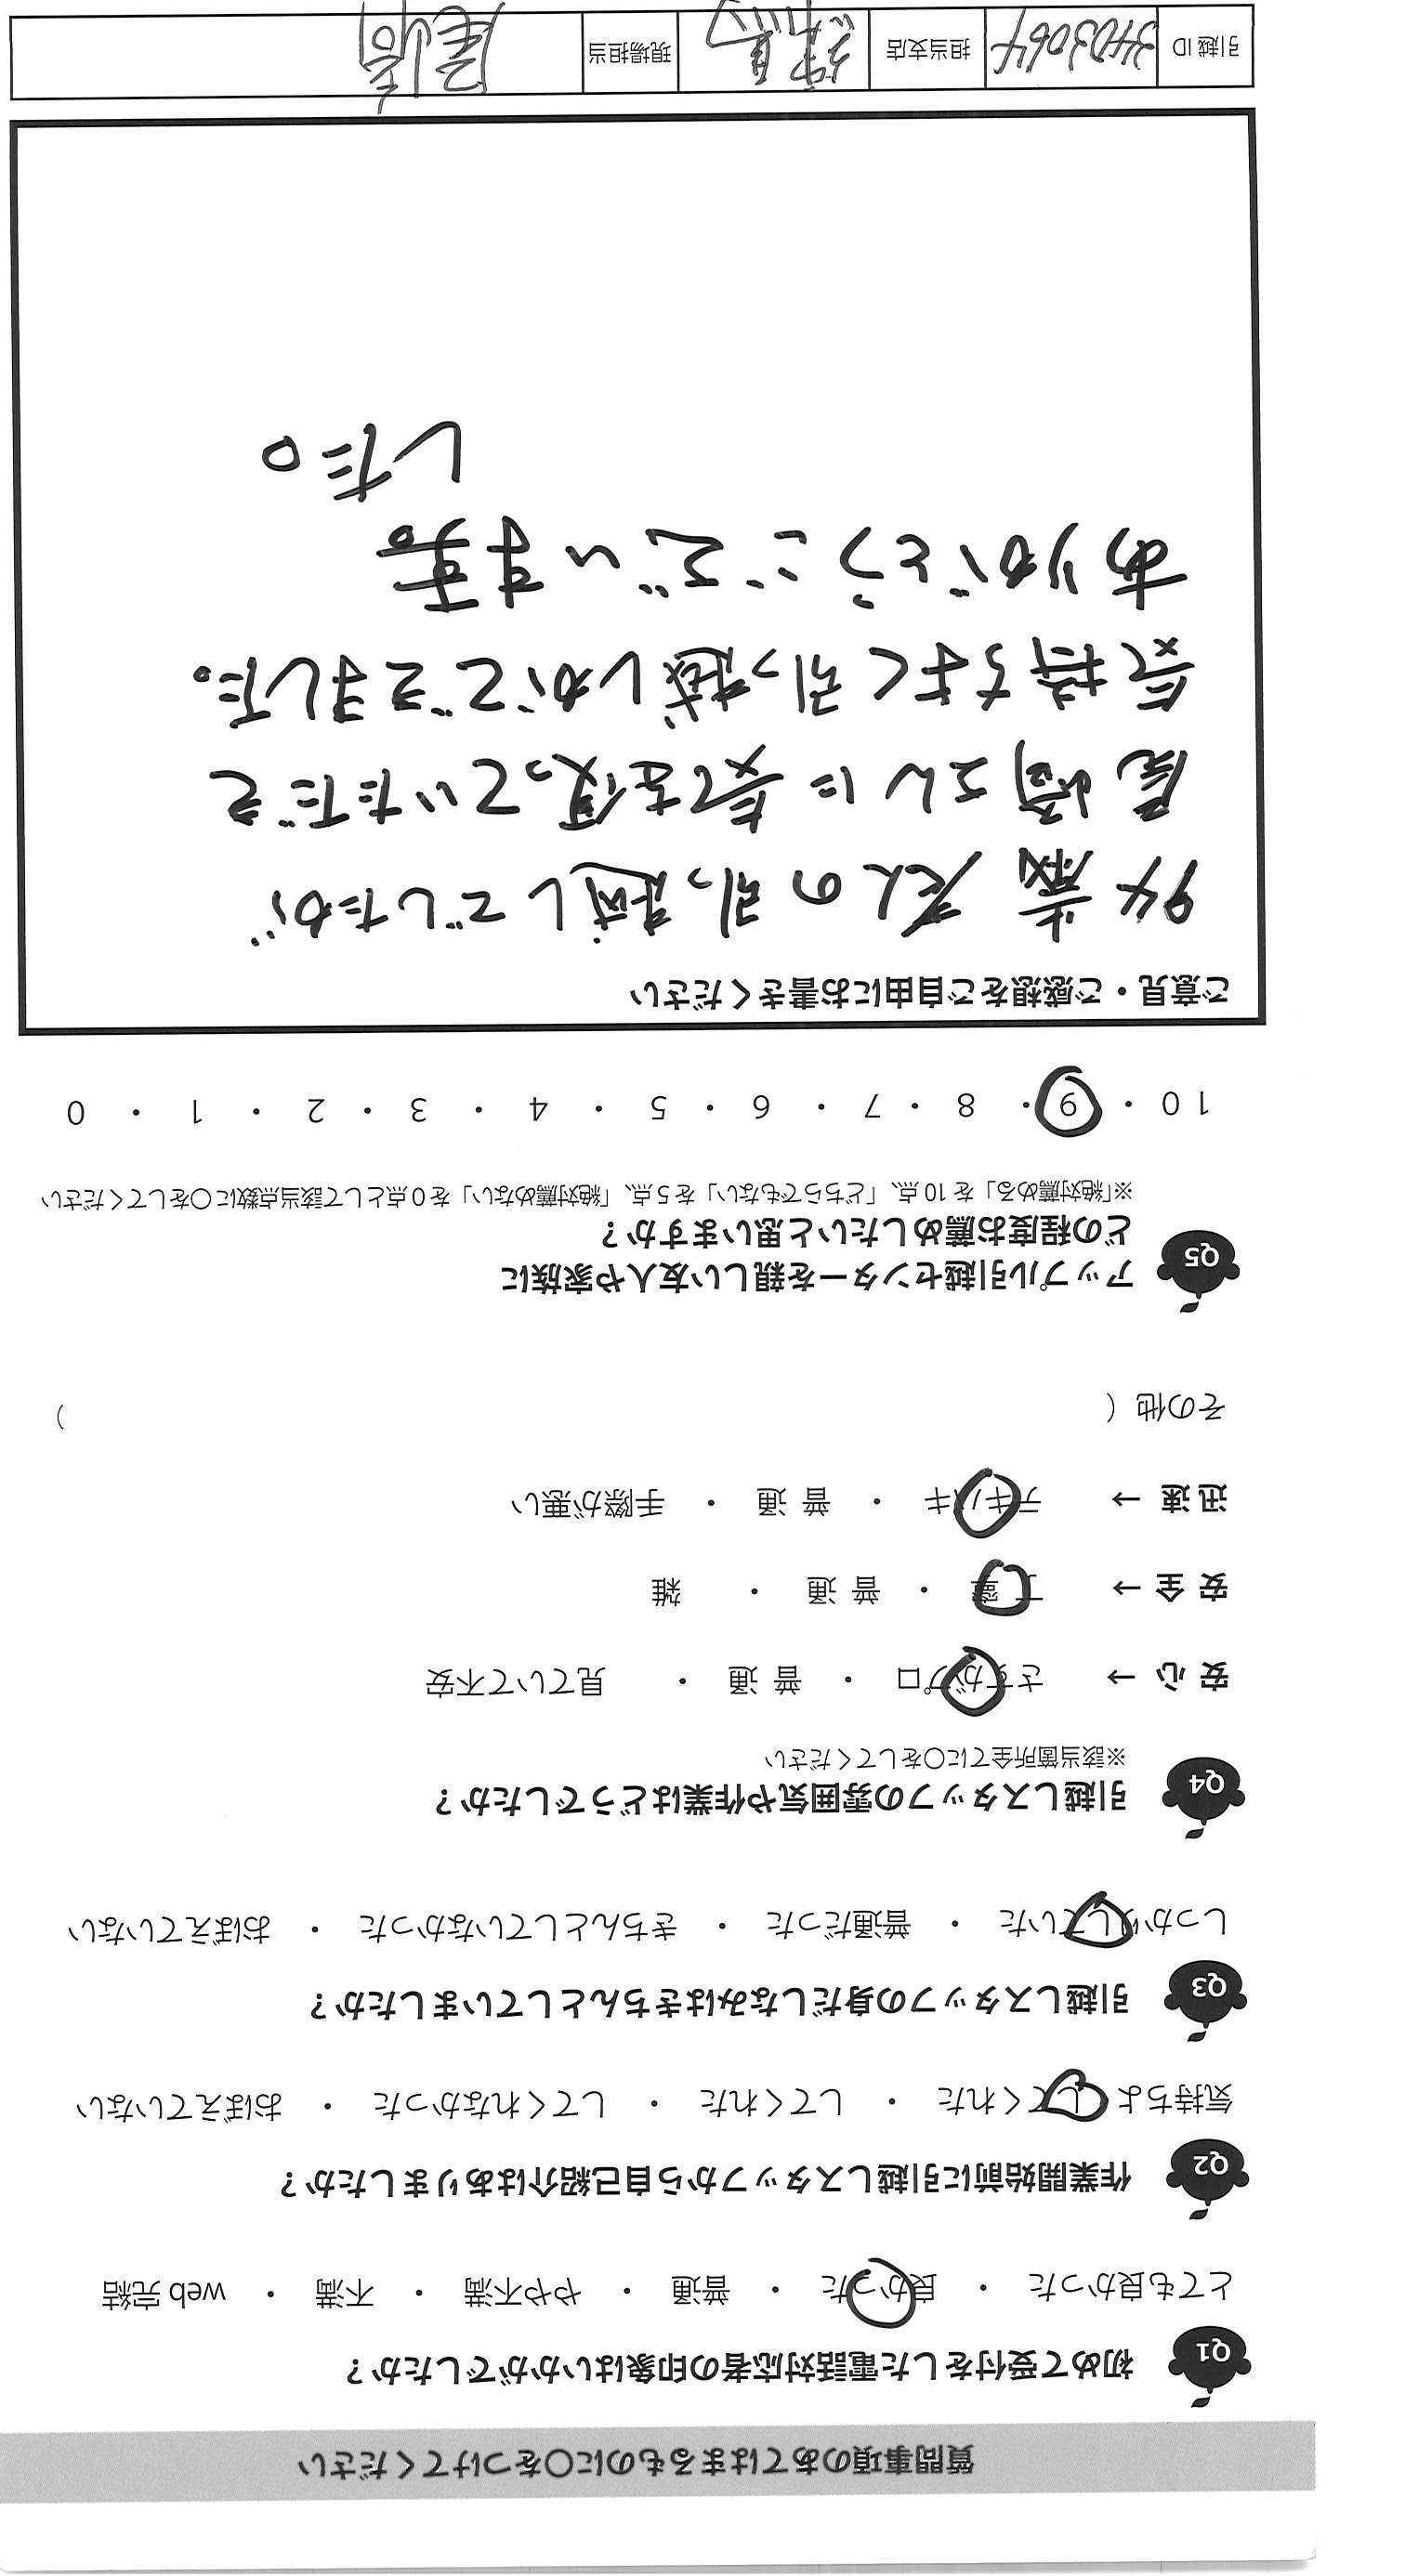 質問事項のあてはまるものに○をつけてください
Q1 初めて受付をした電話対応者の印象はいかがでしたか？
とても良かった ・ 良かった ・ 普通 ・ やや不満 ・ 不満 ・ web 完結
Q2 作業開始前に引越しスタッフから自己紹介はありましたか？
気持ちよくしてくれた ・ してくれた ・ してくれなかった ・ おぼえていない
Q3 引越しスタッフの身だしなみはきちんとしていましたか？
しっかりしていた ・ 普通だった ・ きちんとしていなかった ・ おぼえていない
Q4 引越しスタッフの雰囲気や作業はどうでしたか？
※該当箇所全てに○をしてください
安心 → さすがプロ ・ 普通 ・ 見ていて不安
安全 → 丁寧 ・ 普通 ・ 雑
迅速 → テキパキ ・ 普通 ・ 手際が悪い
その他（ ）
Q5 アップル引越センターを親しい友人や家族に
どの程度お薦めしたいと思いますか？
※「絶対薦める」を 10 点、「どちらでもない」を 5 点、「絶対薦めない」を 0 点として該当点数に○をしてください
10 ・ 9 ・ 8 ・ 7 ・ 6 ・ 5 ・ 4 ・ 3 ・ 2 ・ 1 ・ 0
ご意見・ご感想をご自由にお書きください
94歳 老人の引っ越しでしたが
尾崎さんに気を使っていただき
気持ちよく引っ越しができました。
ありがとうございま
した。
引越 ID 3403064 担当支店 練馬 現場担当 尾崎